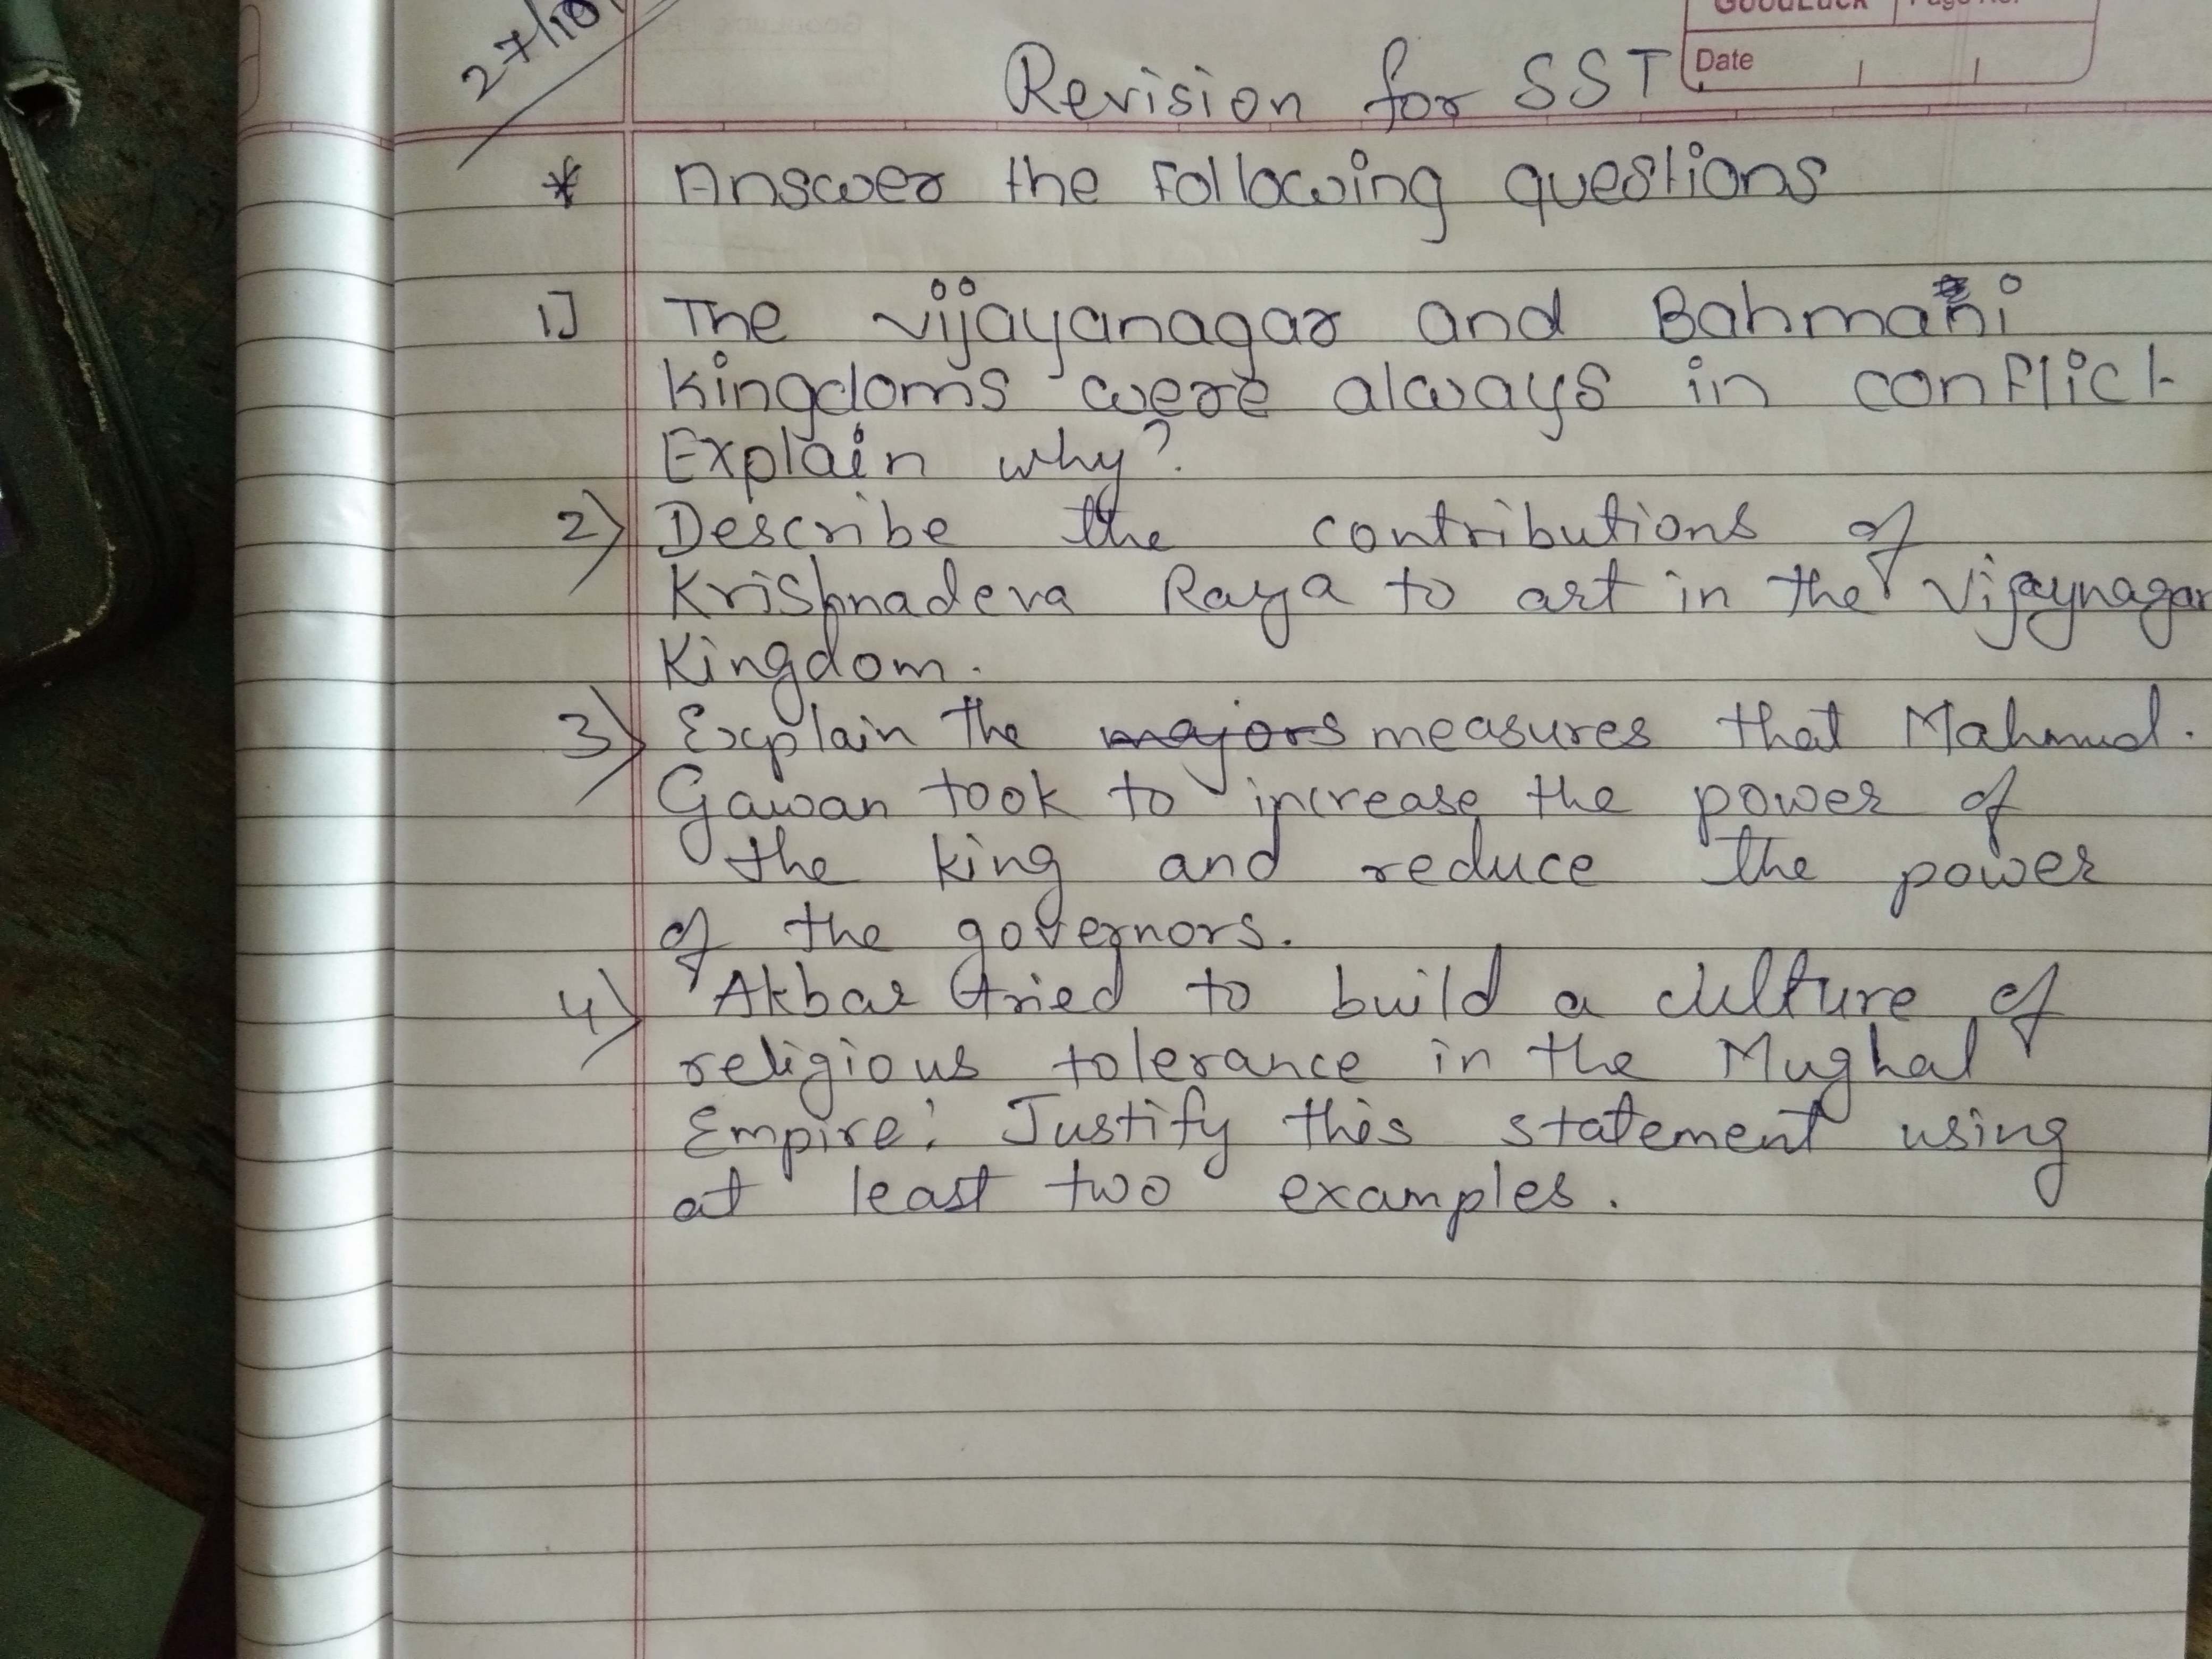 27/10
GOODLUCK Page No.
Date
Revision for SST.
* Answer the following questions
1] The vijayanagar and Bahmani
kingdoms were always in conflict
Explain why?
2) Describe the contributions of
Krishnadeva Raya to art in the Vijaynagar
Kingdom.
3) Explain the majors measures that Mahmud.
Gawan took to increase the power of
the king and reduce the power
of the governors.
4) Akbar tried to build a culture of
religious tolerance in the Mughal
Empire. Justify this statement using
at least two examples.